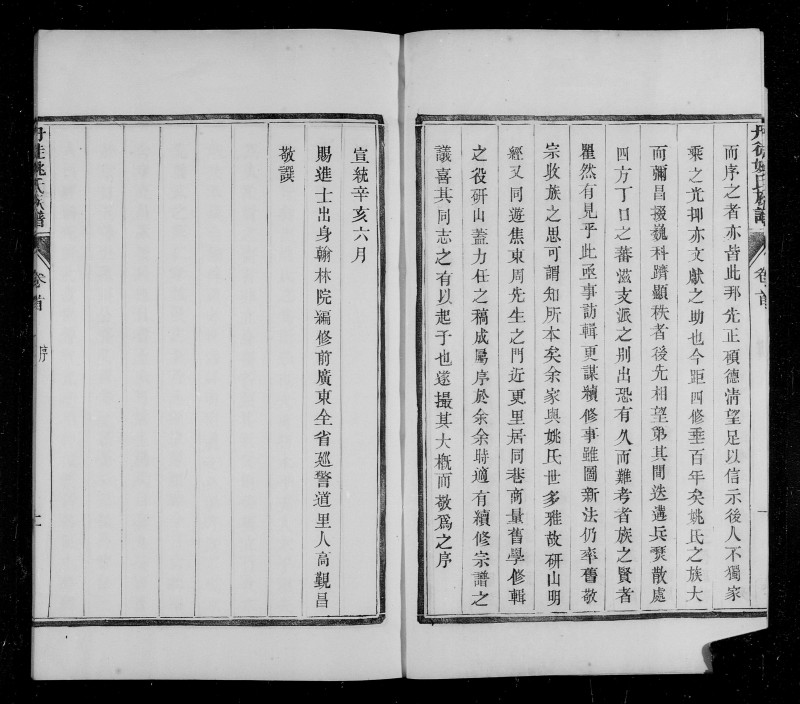 丹徒姚氏族譜 卷首
而序之者亦皆此邦先正碩德清望足以信示後人不獨家
乘之光抑亦文獻之助也今距四修垂百年矣姚氏之族大
而彌昌掇巍科躋顯秩者後先相望第其間迭遘兵燹散處
四方丁口之蕃滋支派之別出恐有久而難考者族之賢者
瞿然有見乎此亟事訪輯更謀續修事雖圖新法仍率舊敬
宗收族之思可謂知所本矣余家與姚氏世多雅故硏山明
經又同遊焦東周先生之門近更里居同巷商量舊學修輯
之役硏山蓋力任之稿成屬序於余余時適有續修宗譜之
議喜其同志之有以起予也遂撮其大槪而敬爲之序
宣統辛亥六月
賜進士出身翰林院編修前廣東全省廵警道里人高覲昌
敬譔
丹徒姚氏族譜 卷首 序 二